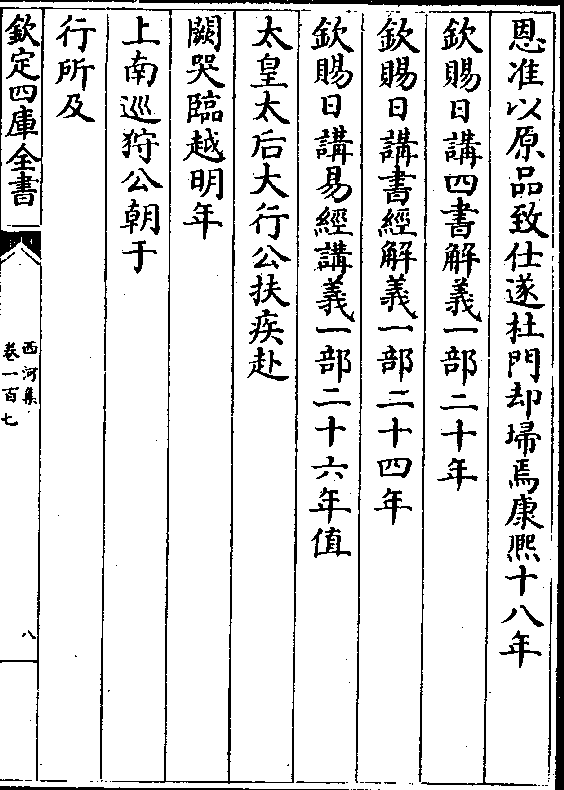 恩准以原品致仕遂杜門却埽焉康熈十八年
欽賜日講四書解義一部二十年
欽賜日講書經解義一部二十四年
欽賜日講易經講義一部二十六年值
太皇太后大行公扶疾赴
闕哭臨越明年
上南巡狩公朝于
行所及
欽定四庫全書
西河集
卷一百七
八